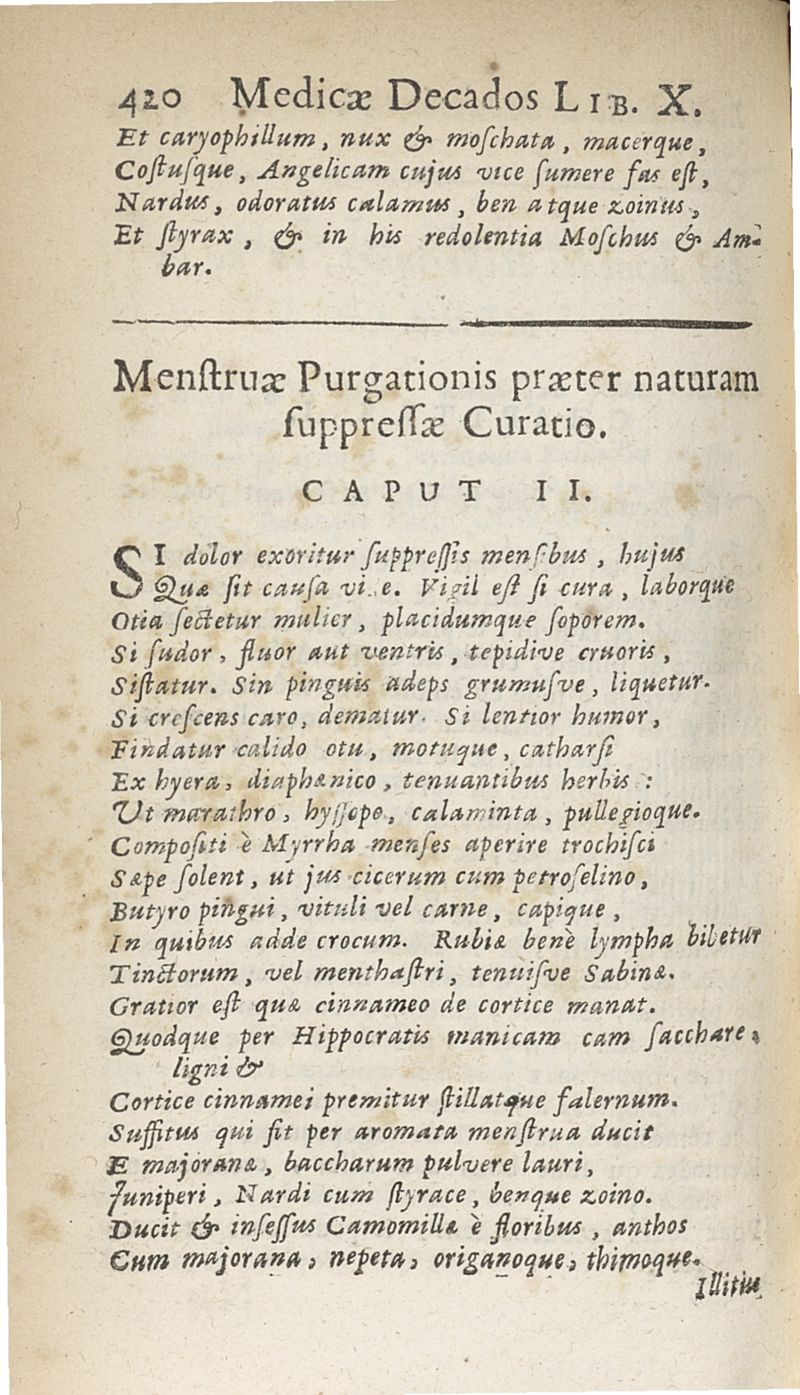 420 Medicæ Decados LIB. X.
Et caryophillum, nux & moſchata, macerque,
Coſtuſque, Angelicam cujus vice ſumere fas eſt,
Nardus, odoratus calamus, ben atque zoinus,
Et ſtyrax, & in his redolentia Moſchus & Am-
bar.
Menſtruæ Purgationis præter naturam
ſuppreſſæ Curatio.
CAPUT II.
SI dolor exoritur ſuppreſſis menſibus, hujus
Quæ ſit cauſa. Vigil eſt ſi cura, laborque
Otia ſectetur mulier, placidumque ſoporem.
Si ſudor, fluor aut ventris, tepidive cruoris,
Siſtatur. Sin pinguis adeps grumuſve, liquetur.
Si creſcens caro, dematur. Si lentior humor,
Findatur calido otu, motuque, catharſi
Ex hyera, diaphænico, tenuantibus herbis:
Ut marathro, hyſſopo, calaminta, pullegioque.
Compoſiti è Myrrha menſes aperire trochiſci
Sæpe ſolent, ut jus cicerum cum petroſelino,
Butyro pingui, vituli vel carne, capique,
In quibus adde crocum. Rubiæ benè lympha bibetur
Tinctorum, vel menthaſtri, tenuiſve Sabinæ.
Gratior eſt quæ cinnameo de cortice manat.
Quodque per Hippocratis manicam cam ſacchare,
ligni &
Cortice cinnamei premitur ſtillatque falernum.
Suffitus qui fit per aromata menſtrua ducit
E majorana, baccharum pulvere lauri,
Juniperi, Nardi cum ſtyrace, benque zoino.
Ducit & inſeſſus Camomillæ è floribus, anthos
Cum majorana, nepeta, origanoque, thimoque.
Illitus